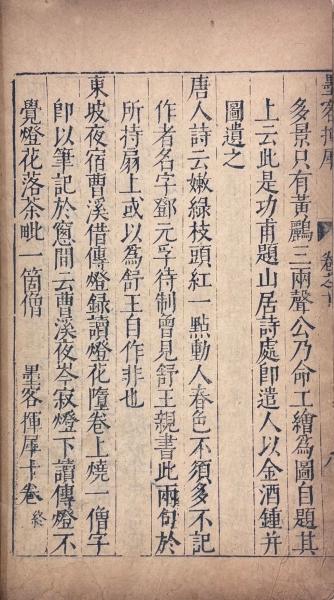 墨客揮犀 卷之十
多景只有黃鸝三兩聲公乃命工繪為圖自題其
上云此是功甫題山居詩處即遣人以金酒鍾并
圖遺之
唐人詩云嫩綠枝頭紅一點動人春色不須多不記
作者名字鄧元孚待制曾見舒王親書此兩句於
所持扇上或以為舒王自作非也
東坡夜宿曹溪借傳燈錄讀燈花墮卷上燒一僧字
即以筆記於窻間云曹溪夜岑寂燈下讀傳燈不
覺燈花落茶毗一箇僧 墨客揮犀十卷終